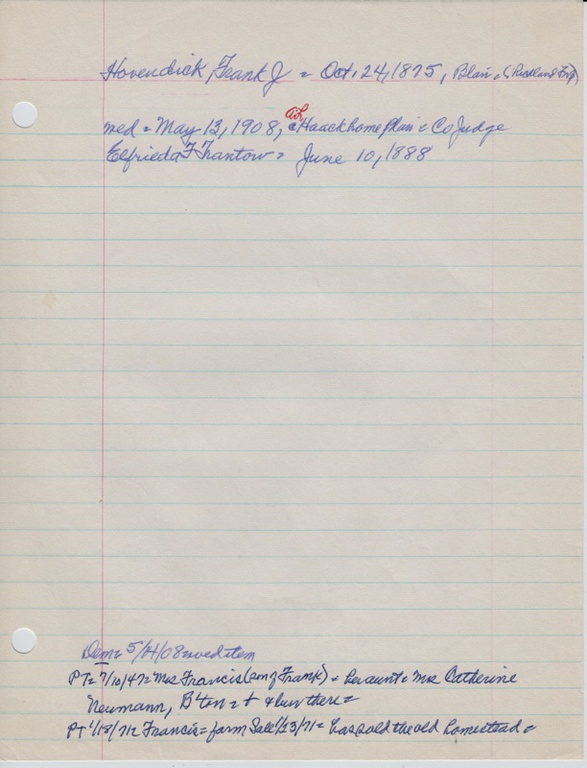 Hovendick Frank J = Oct. 24, 1875, Blair =
wed = May 13, 1908, at Haack home Blair = Co Judge
Elfrieda F Frantow = June 10, 1888
Dem = 5/14/08 = wed item
PT = 7/10/47 = Mrs Francis (son of Frank) = her aunt = Mrs Catherine
Neumann, B'ton = + & bur there =
PT 1/13/71 = Francis = farm Sale 1/23/71 = has sold the old homestead =